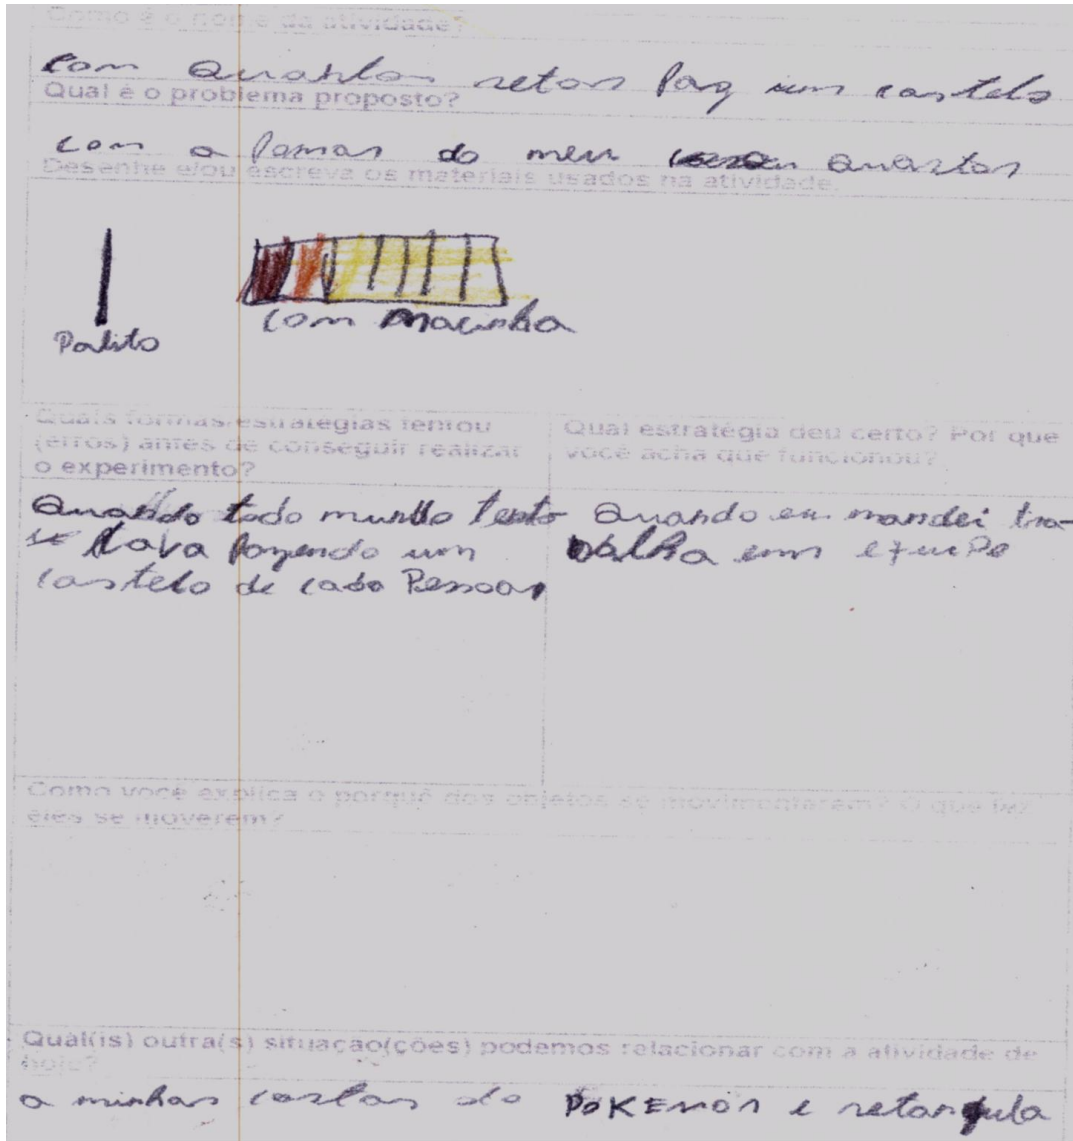 Como é o nome da atividade?
Com Quantas retas faz um castelo
Qual é o problema proposto?
com a formas do meu Quartos
Desenhe e/ou escreva os materiais usados na atividade.
Palito
com Macinha
Quais formas/estratégias tentou
(erros) antes de conseguir realizar
o experimento?
Quando todo mundo tento
fazendo um
castelo de cada Pessoas
Qual estratégia deu certo? Por que
você acha que funcionou?
Quando eu mandei tra-
balha em equipe
Como você explica o porquê dos objetos se movimentarem? O que faz
eles se moverem?
Qual(is) outra(s) situação(ções) podemos relacionar com a atividade de
hoje?
a minhas cartas do POKEMON e retangula